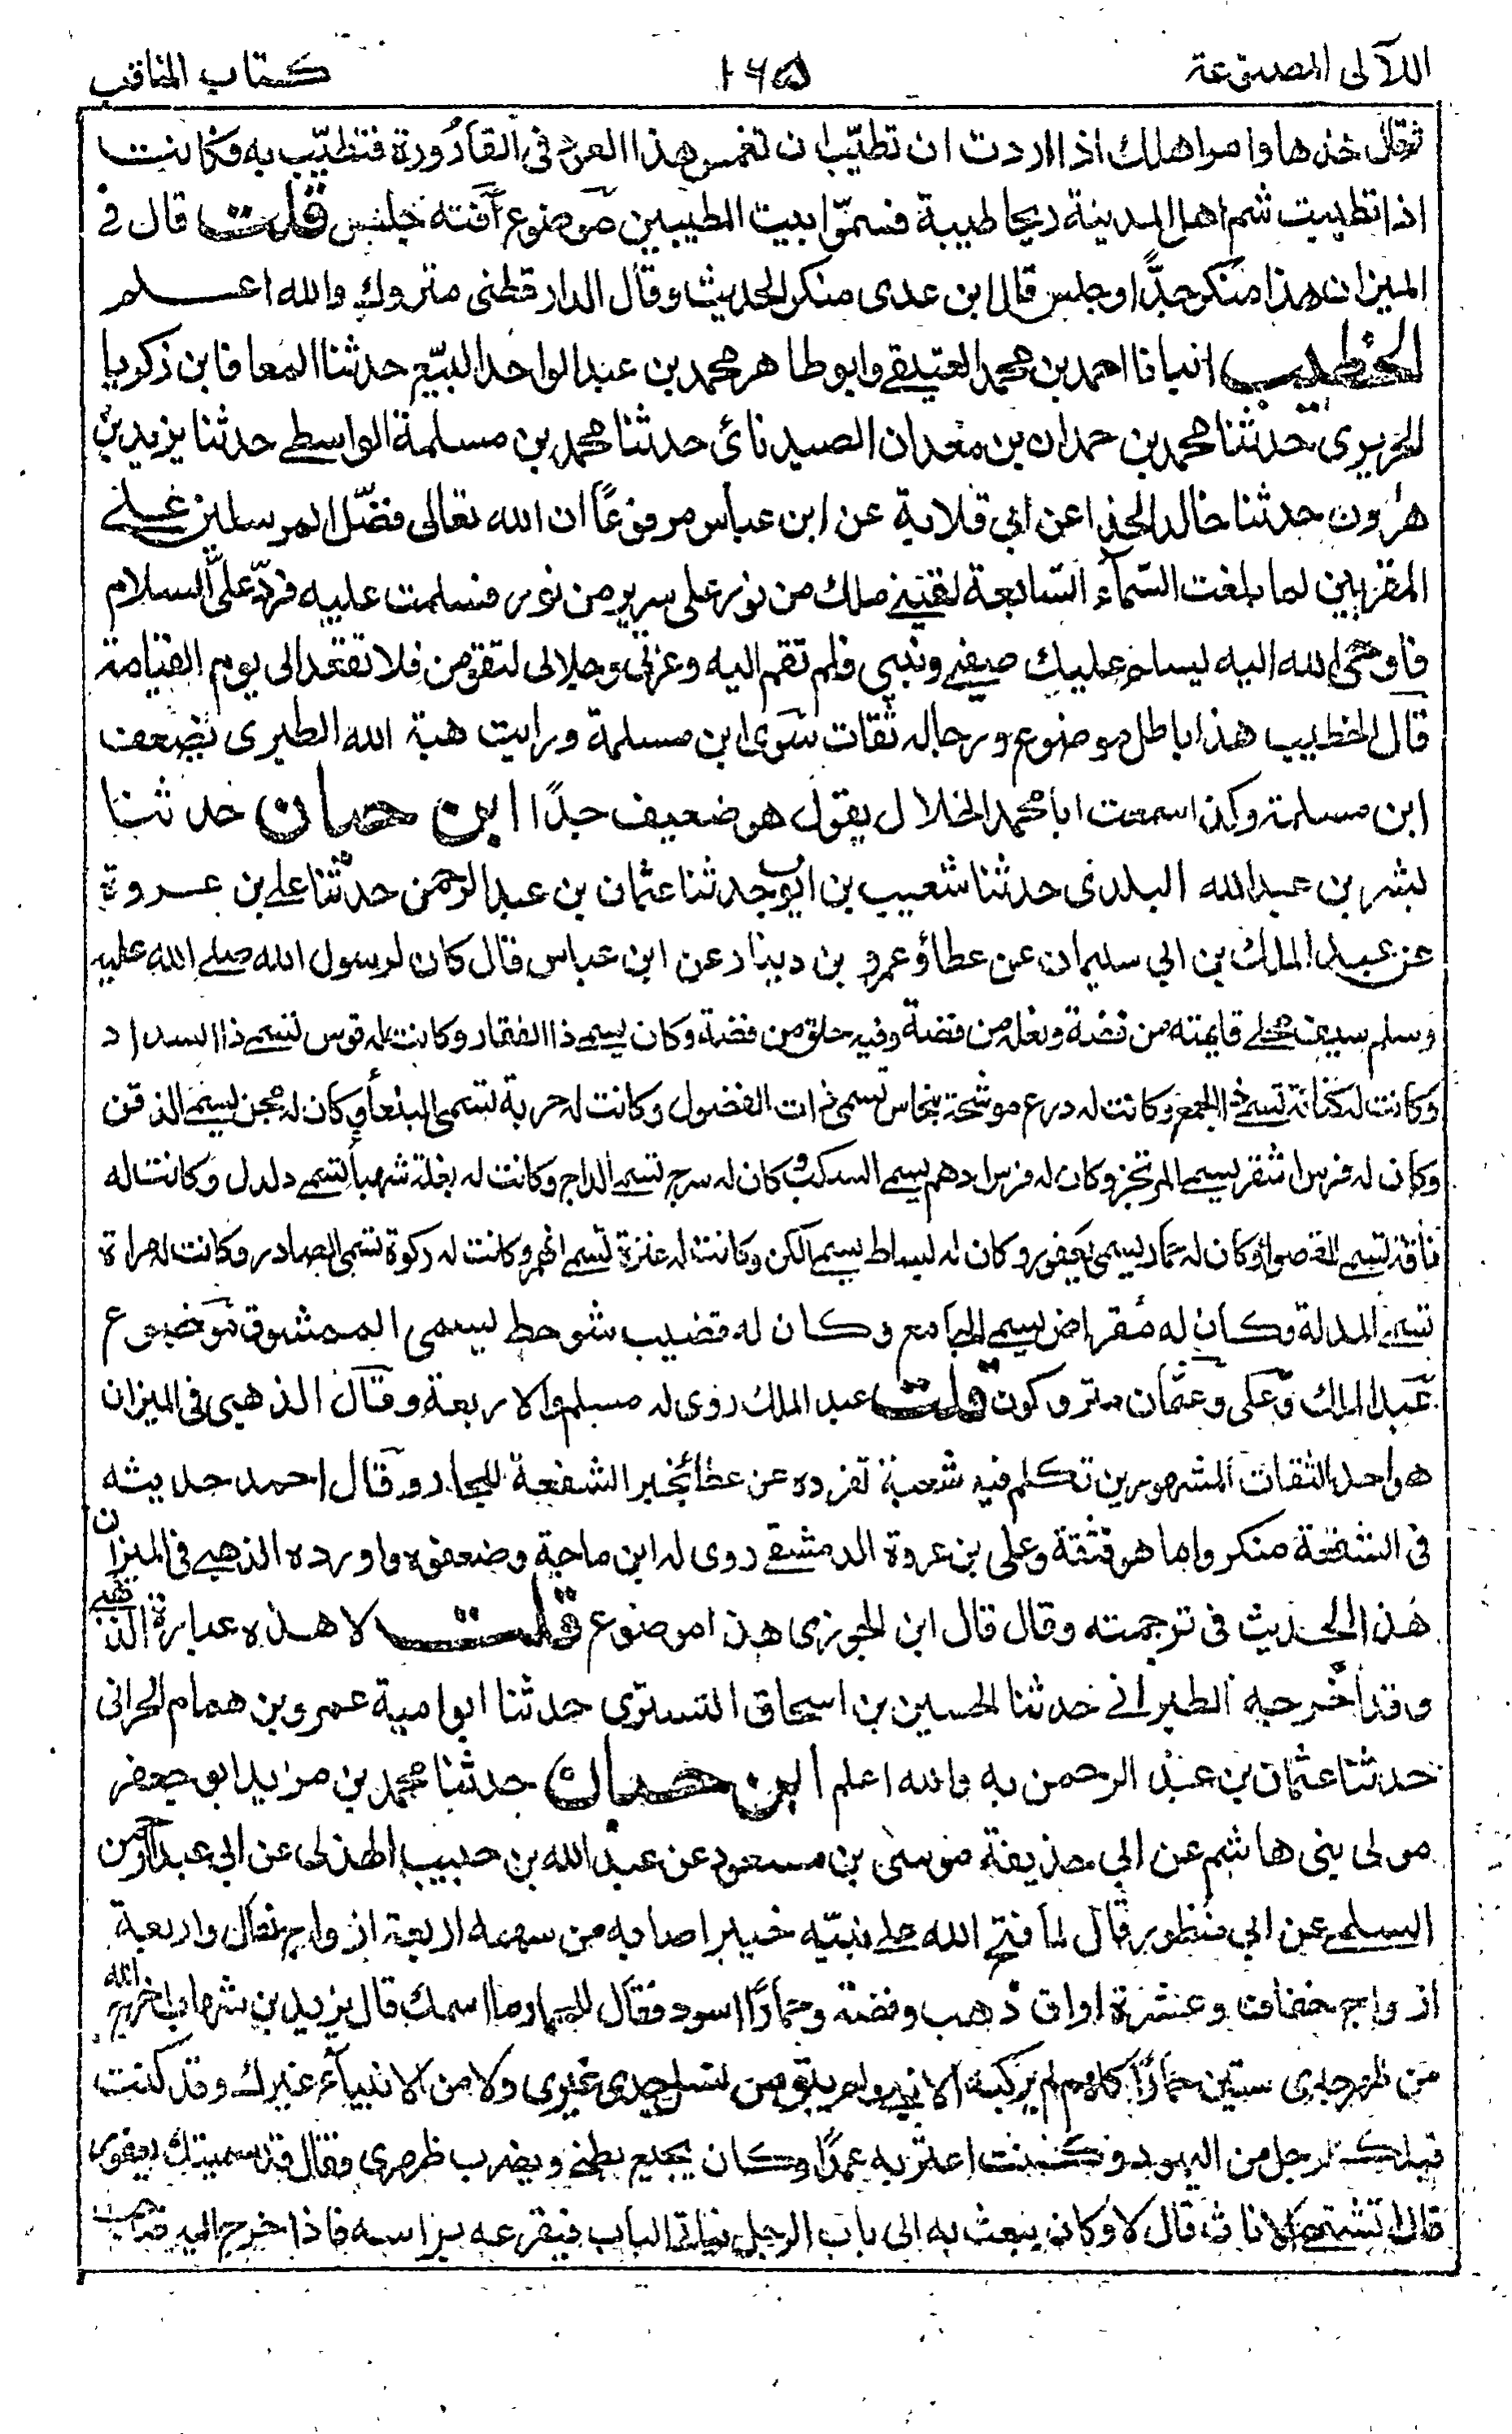 اللآلى المصنوعة ١٦٥ كتاب المناقب
فقال خذها وامر اهلك اذا اردت ان تطيب ان تغمس هذا العرق فى القارورة فتطيّب به فكانت
اذا تطيبت شم اهل المدينة ريحا طيبة فسموا بيت المطيبين موضوع آفته جلبس قلت قال فى
الميزان هذا منكر جدًّا وجلبس قال ابن عدى منكر الحديث وقال الدارقطنى متروك والله اعلم
الخطيب انبانا احمد بن محمد العتيقے وابو طاهر محمد بن عبد الواحد البيّع حدثنا المعافا بن زكريا
الجريرى حدثنا محمد بن حمدان بن معدان الصيدنائى حدثنا محمد بن مسلمة الواسطے حدثنا يزيد بن
هرون حدثنا خالد الحذا عن ابي قلابة عن ابن عباس مرفوعًا ان الله تعالى فضّل المرسلين علے
المقربين لما بلغت السّمآء السّابعة لقينے ملك من نور على سرير من نور فسلمت عليه فردّ علىّ السلام
فاوحى الله اليه ليسلم عليك صفيى ونبيى فلم تقم اليه وعزتى وجلالى لتقومن فلا تقعد الى يوم القيامة
قال الخطيب هذا باطل موضوع ورجاله ثقات سوى ابن مسلمة ورايت هبة الله الطبرى يضعف
ابن مسلمة وكذا سمعت ابا محمد الخلال يقول هو ضعيف جدًا ابن حبان حدثنا
بشر بن عبد الله البلدى حدثنا شعيب بن ايوب حدثنا عثمان بن عبد الرحمن حدثنا علے بن عروة
عن عبد الملك بن ابي سليمان عن عطا وعمرو بن دينار عن ابن عباس قال كان لرسول الله صلے الله عليه
وسلم سيف محلے قايمته من فضة ونعله من فضة وفيه حلق من فضة وكان يسمے ذا الفقار وكانت له قوس تسمے ذا السداد
وكانت له كنانة تسمے ذا الجمع وكانت له درع موشحة بنحاس تسمى ذات الفضول وكانت له حربة تسمى النبعا وكان له مجن يسمے الذقن
وكان له فرس اشقر يسمے المرتجز وكان له فرس ادهم يسمے السكب وكان له سرج تسمے الداج وكانت له بغلة شهبا تسمے دلدل وكانت له
ناقة تسمے القصوا وكان له حمار يسمى يعفور وكان له بساط يسمے الكن وكانت له عنزة تسمے النمر وكانت له ركوة تسمى الصادر وكانت له مراة
تسمے المدلة وكان له مقراض يسمے الجامع وكان له قضيب شوحط يسمى الممشوق موضوع
عبد الملك وعلى وعثمان متروكون قلت عبد الملك روى له مسلم والاربعة وقال الذهبى فى الميزان
هو احد الثقات المشهورين تكلم فيه شعبة لتفرده عن عطا بخبر الشفعة للجار وقال احمد حديثه
فى الشفعة منكر واما هو فثقة وعلى بن عروة الدمشقے روى له ابن ماجة وضعفوه واورده الذهبے فى الميزان
هذا الحديث فى ترجمته وقال قال ابن الجوزى هذا موضوع قلت لا هذه عبارة الذهبے
وقد اخرجه الطبرانے حدثنا الحسين بن اسحاق التسترى حدثنا ابو امية عمرو بن همام الحرانى
حدثنا عثمان بن عبد الرحمن به والله اعلم ابن حبان حدثنا محمد بن مزيد ابو جعفر
مولى بنى هاشم عن ابي حذيفة موسى بن مسعود عن عبد الله بن حبيب الهذلى عن ابي عبد الرحمن
السلمے عن ابي منظور قال لما فتح الله علے نبيّه خيبر اصابه من سهمه اربعة ازواج نعال واربعة
ازواج خفاف وعشرة اواق ذهب وفضة وحمارًا اسود فقال للحمار ما اسمك قال يزيد بن شهاب اخرج الله
من ظهر جدى ستين حمارًا كلهم لم يركبه الا نبے ولم يبق من نسل جدى غيرى ولا من الانبيآء غيرك وقد كنت
قبلك لرجل من اليهود وكنت اعثر به عمدًا وكان يجيع بطنے ويضرب ظهرى وقال قد سميتك يعفور
قال اتشتهے الاناث قال لا وكان يبعث به الى باب الرجل فياتے الباب فيقرعه براسه فاذا خرج اليه صاحب